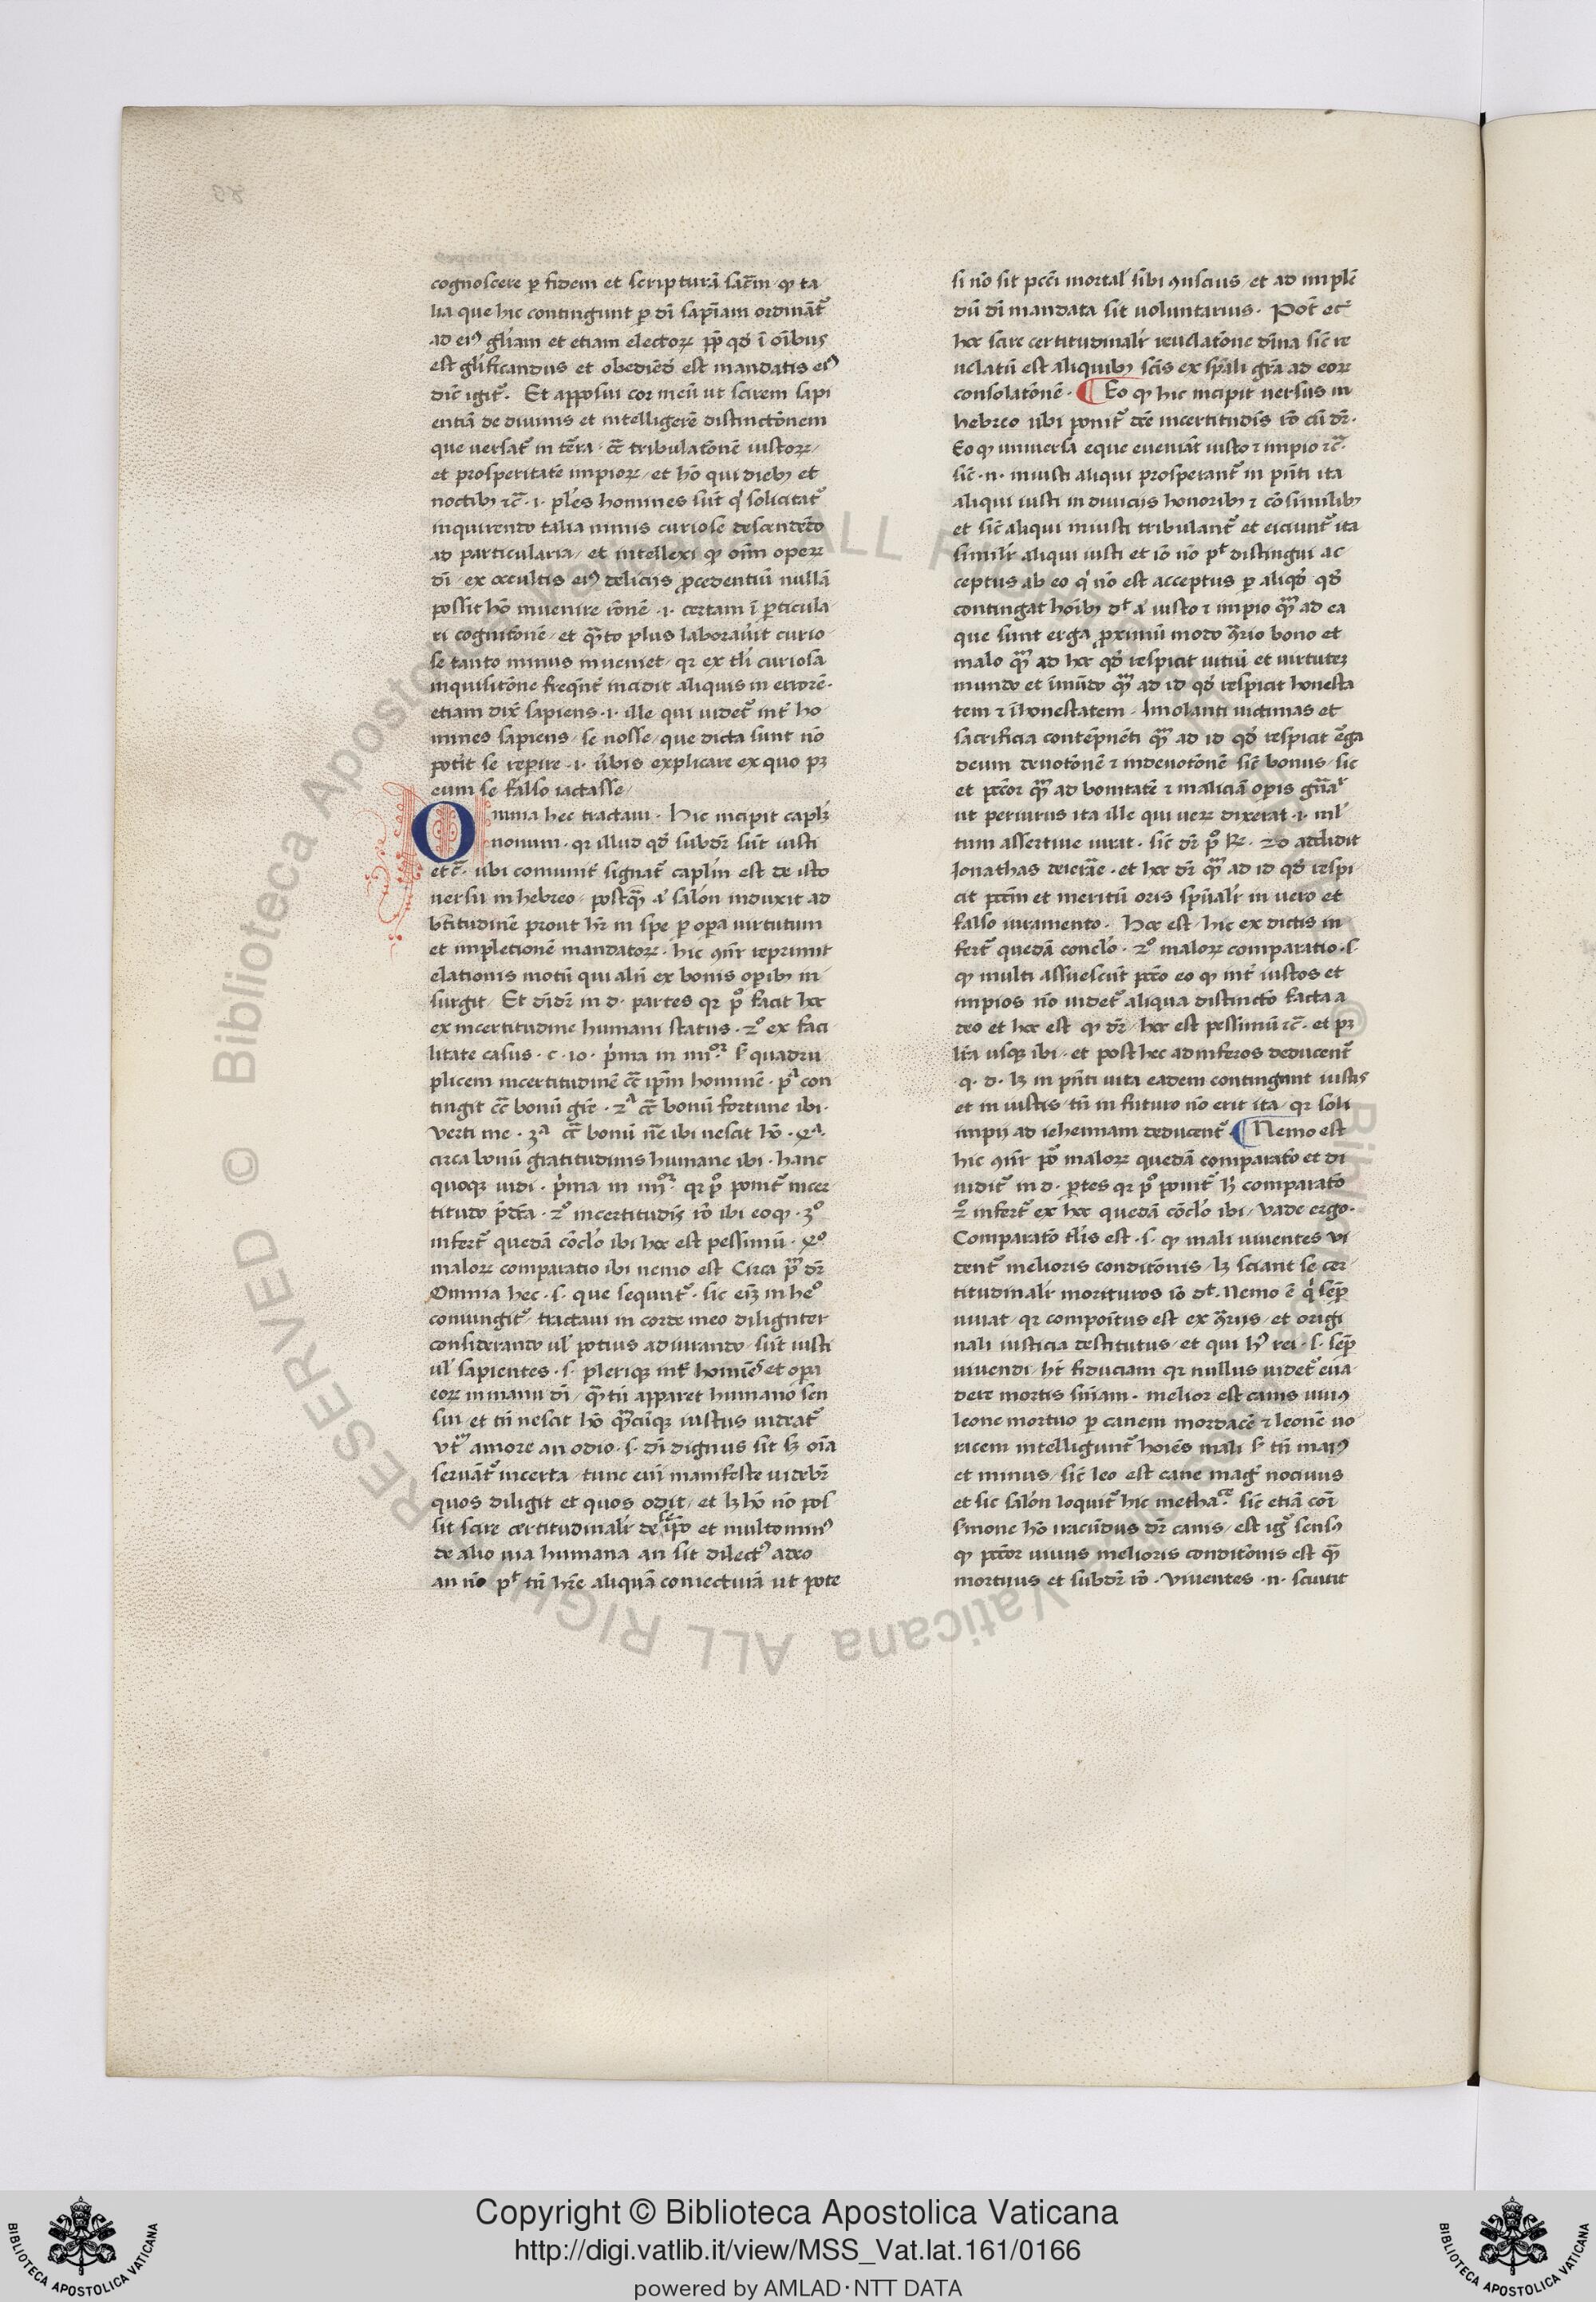 cognoscere ꝑ fidem et scripturā sac̄m ꝙ ta
lia que hic contingunt ꝑ dī sapīam ordinant᷑
ad eiꝰ gl̄iam et etiam electoꝝ pp̄ qd̓ ī oībus
est glificandus et obediēd̓ est mandatis eiꝰ
dic̄ igit᷑. Et apposui cor meū ut scirem sapi
entiā de diuinis et intelligere distinctōnem
que versat᷑ in t̄ra. cc̄ tribulatōnē iustoꝝ
et prosperitatē impioꝝ et hō qui dieb; et
noctib; ⁊c̄ .i. pl̄es homines sūt q̓ solicitat᷑
inquirendo talia nimis curiose descendēdo
ad particularia et intellexi ꝙ oīm opeꝝ
dī ex occultis eiꝰ deliciis ꝓcedentiū nullā
possit hō inuenire rōnē .i. certam ī ꝑticula
ri cognitōnē et qͣto plus laborauit curio
se tanto minus inueniet qꝛ ex tl̄i curiosa
inquisitōne freqn̄t incidit aliquis in errorē.
etiam dix̄ sapiens .i. ille qui uidet᷑ int̄ ho
mines sapiens se nosse que dicta sunt nō
potit se reꝑire .i. ūbis explicare ex quo pꝫ
eum se falso iactasse
Omnia hec tractaui. Hic incipit caplꝫ
nonum. qꝛ illud qd̓ subdr̄ sūt iusti
etc̄. ubi comunit̄ signat᷑ caplm̄ est de isto
uersu in hebreo. postqͣ a̓ salōn induxit ad
btitudinē prout hr̄ in spe ꝑ oꝑa uirtutum
et impletionē mandatoꝝ. hic ꝯn̄r reprimit
elationis motū qui alii ex bonis opib; in
surgit Et diddr̄ in d. partes qꝛ pº facit hoc
ex incertitudine humani status. 2º ex faci
litate casus. c. 10. p̓ma in iiiiºꝛ s. quadru
plicem incertitudinē cc̄ ip̄m hominē. pª con
tingit cc̄ bonū gr̄e. 2ª cc̄ bonū fortune ibi.
verti me. 3ª cc̄ bonū nē ibi nescit hō. 4ª.
circa bonū gratitudinis humane ibi. hanc
quoqꝫ uidi. p̓ma in iiiiºꝛ. qꝛ pº ponit᷑ incer
titudo p̄dc̄a. 2º incertitudīs rō ibi eoꝙ. 3º
infert᷑ quedā cōclō ibi hoc est pessimū. 4º
maloꝝ comparatio ibi nemo est Circa pm̄ dr̄
Omnia hec .s. que sequūt᷑. sic eīꝫ in heº
coniungit᷑ tractaui in corde meo dilign̄ter
considerando ul̓ potius adiurando sūt iusti
ul̓ sapientes .s. pleriqꝫ int̄ homiēs et opa
eoꝝ in manu dī qͣ tn̄ apparet humano sen
sui et tn̄ nescit hō qͣcūqꝫ iustus uideat᷑
vtꝝ amore an odio .s. dī dignus sit sꝫ oīa
seruāt᷑ incerta tunc enī manifeste uidebr̄
quos diligit et quos odit et lꝫ hō nō pos
sit scire certitudinalr̄ de seīpo et multomīꝰ
de alio uia humana an sit dilectꝰ adeo
an nō pt tn̄ hr̄e aliquā coniecturā ut pote
si nō sit pcc̄i mortal̓ sibi ꝯscius et ad imple
dū dī mandata sit uoluntarius. Pot̄ et̄
hoc scire certitudinalr̄ reuelatōne dīna sic̄ re
uelatū est aliquib; sc̄is ex sp̄ali gr̄a ad eoꝝ
consolatōnē. ¶ Eo ꝙ hic incipit uersus in
hebreo ubi ponit᷑ dc̄e incertitudīs rō cū dr̄.
Eo ꝙ uniuersa eque eueniāt iusto ⁊ impio ⁊c̄.
sic̄ .n. iniusti aliqui prosperant᷑ in pn̄ti ita
aliqui iusti in diuiciis honorib; ⁊ cōsimilib;
et sic̄ aliqui iniusti tribulant᷑ et eiciunt᷑ ita
similr̄ aliqui iusti et iō nō pt distingui ac
ceptus ab eo q̓ nō est acceptus ꝑ aliqd̓ qd̓
contingat hoīb; dt a̓ iusto ⁊ impio qͣ ad ea
que sunt erga ꝓximū modo ꝯrio bono et
malo qͣ ad hoc qd̓ respicit uitiū et uirtuteꝫ
mundo et īmūdo qͣ ad id qd̓ respicit honesta
tem ⁊ īhonestatem. Imolanti uictimas et
sacrificia contēpnēti qͣ ad id qd̓ respicit ēga
deum deuotōnē ⁊ indeuotōnē sic̄ bonus sic
et pcc̄or qͣ ad bonitatē ⁊ maliciā oꝑis gn̄aˡ
ut periurus ita ille qui ueꝝ dixerat .i. ml̓
tum assertiue iurat. sic̄ dr̄ pº R. 20 addidit
Jonathas deieīae. et hoc dr̄ qͣ ad id qd̓ respi
cit pcc̄m et meritū oris sp̄ualr̄ in uero et
falso iuramento. Hoc est hic ex dictis in
fert᷑ quedā conclō. 2º maloꝝ comparatio .s.
ꝙ multi assuescūt pcc̄o eo ꝙ int̄ iustos et
impios nō uidet᷑ aliqua distinctō facta a
deo et hoc est ꝙ dr̄ hoc est pessimū ⁊c̄. et pꝫ
lr̄a usqꝫ ibi. et post hec ad inferos deducent᷑
.q. d. lꝫ in pn̄ti uita eadem contingant iustis
et iniustis tn̄ in futuro nō erit ita qꝛ soli
impij ad iehennam deducent᷑. ¶ Nemo est
hic ꝯn̄r pō maloꝝ quedā comparatō et di
uidit᷑ in d. ꝑtes qꝛ pº ponit᷑ hͨ comparatō
2º infert᷑ ex hoc quedā cōclō ibi vade ergo.
Comparatō tl̄is est .s. ꝙ mali uiuentes vi
dent᷑ melioris conditōnis lꝫ sciant se cer
titudinalr̄ morituros iō dt. Nemo ē q̓ semꝑ
uiuat qꝛ compoitus est ex ꝯriis et origi
nali iusticia destitutus et qui hꝰ rei .s. semꝑ
uiuendi hēt fiduciam qꝛ nullus uidet᷑ eua
dere mortis sn̄iam. melior est canis uiuꝰ
leone mortuo ꝑ canem mordacē ⁊ leonē uo
racem intelligunt᷑ hoiēs mali s. tn̄ maiꝰ
et minus sic̄ leo est cane magˢ nociuus
et sic salōn loquit᷑ hic methaᶜᵉ. sic̄ etiā coī
s̓mone hō iracūdus dr̄ canis est igᷓ sensꝰ
ꝙ pcc̄or uiuus melioris conditōnis est qͣ
mortuus et subdr̄ rō. viuentes .n. sciunt
Copyright © Biblioteca Apostolica Vaticana
http://digi.vatlib.it/view/MSS_Vat.lat.161/0166
powered by AMLAD·NTT DATA